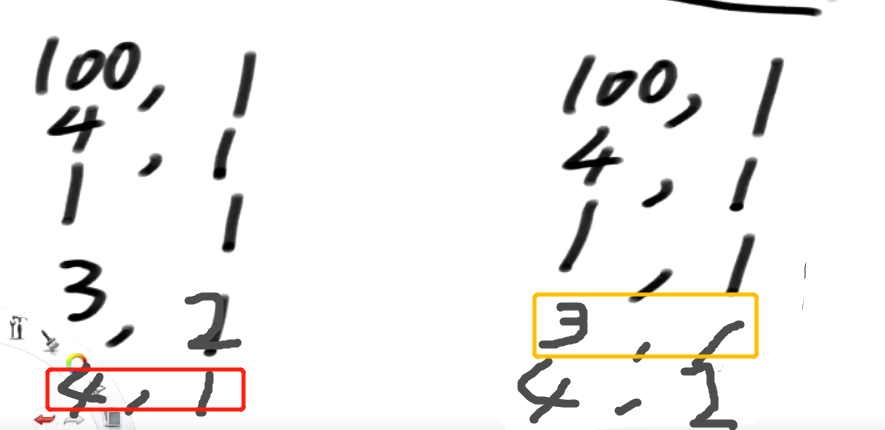 100, 1
4, 1
1 1
3, 2
4, 1
100, 1
4, 1
1, 1
3, 1
4, 2